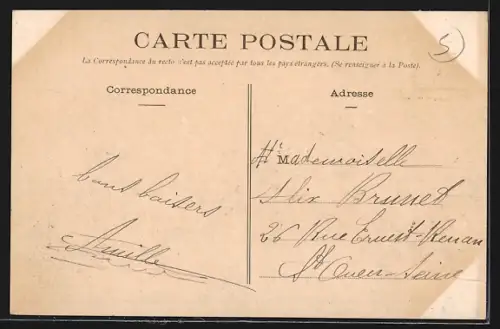 5
CARTE POSTALE
La Correspondance du recto n'est pas acceptée par tous les pays étrangers. (Se renseigner à la Poste).
Correspondance
Adresse
bons baisers
Mademoiselle
Brunet
26 Rue Ernest-Renan
St Ouen-Seine